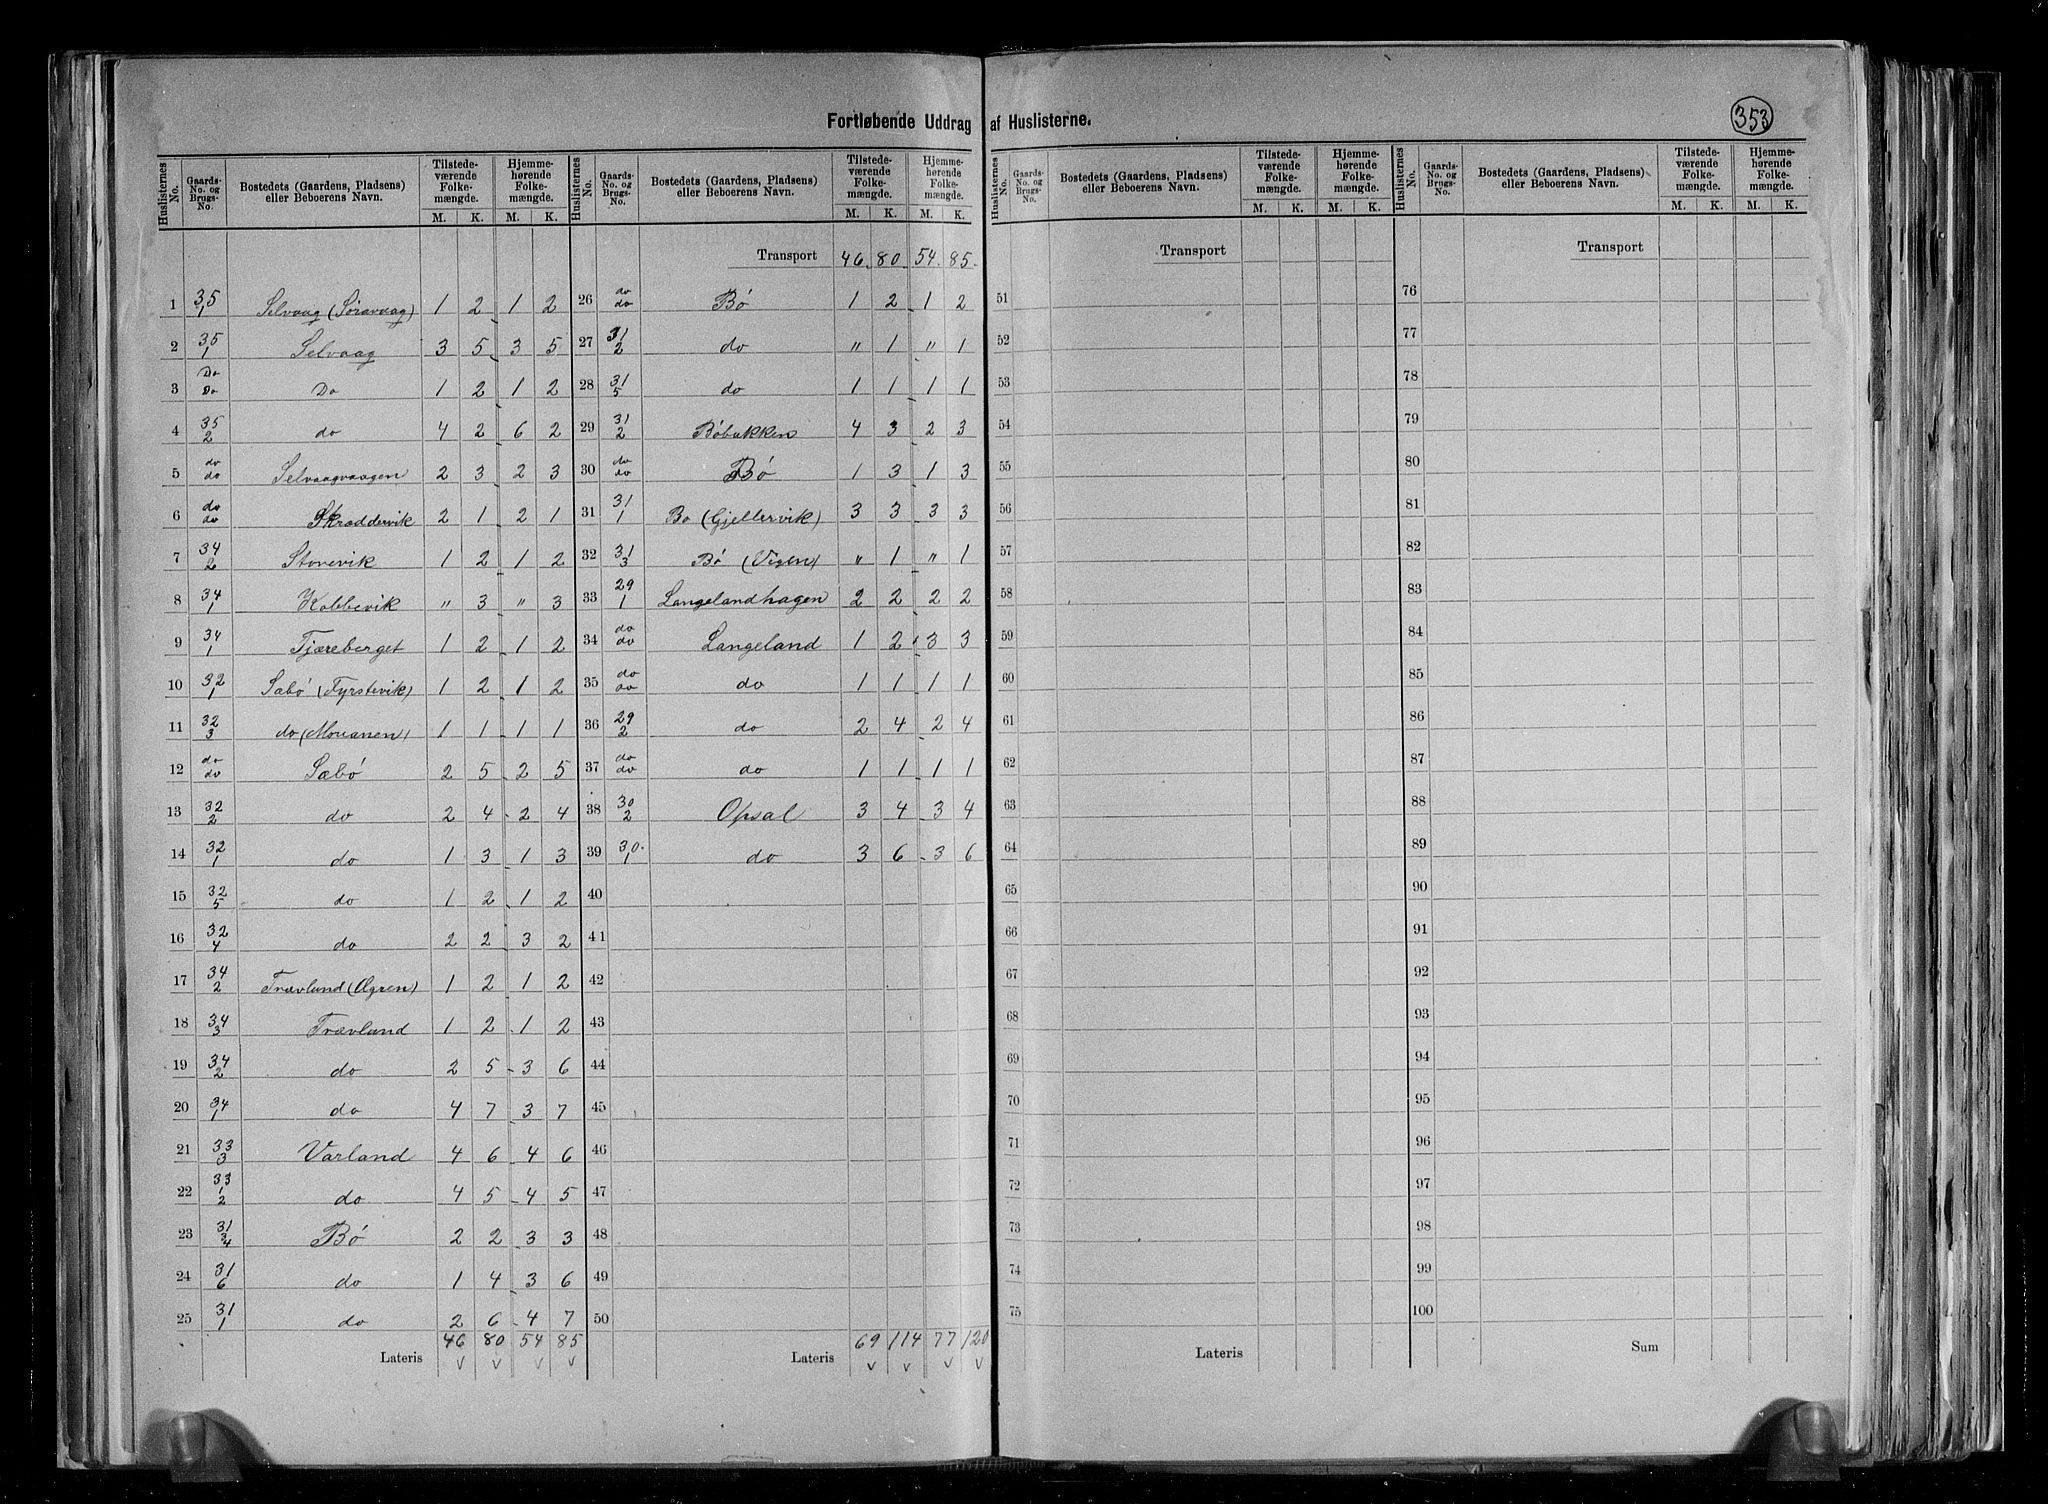 Fortløbende Uddrag af Huslisterne.
353
Huslisternes No. | Gaards-No. og Brugs-No. | Bostedets (Gaardens, Pladsens) eller Beboerens Navn. | Tilstedeværende Folkemængde. M. K. | Hjemmehørende Folkemængde. M. K.
1 35/1 Selvaag (Søravaag) 1 2 1 2
2 35/1 Selvaag 3 5 3 5
3 Do/Do Do 1 2 1 2
4 35/2 do 4 2 6 2
5 do/do Selvaagvaagen 2 3 2 3
6 do/do Skraddervik 2 1 2 1
7 34/2 Storevik 1 2 1 2
8 34/1 Kobbevik " 3 " 3
9 34/1 Tjæreberget 1 2 1 2
10 32/1 Sæbø (Fyrstevik) 1 2 1 2
11 32/3 do 1 1 1 1
12 do/do Sæbø 2 5 2 5
13 32/2 do 2 4 2 4
14 32/1 do 1 3 1 3
15 32/5 do 1 2 1 2
16 32/4 do 2 2 3 2
17 34/2 Trævland (Øgren) 1 2 1 2
18 34/3 Trævland 1 2 1 2
19 34/2 do 2 5 3 6
20 34/1 do 4 7 3 7
21 33/3 Varland 4 6 4 6
22 33/1/2 do 4 5 4 5
23 31/3/4 Bø 2 2 3 3
24 31/6 do 1 4 3 6
25 31/1 do 2 6 4 7
Lateris 46 80 54 85
Huslisternes No. | Gaards-No. og Brugs-No. | Bostedets (Gaardens, Pladsens) eller Beboerens Navn. | Tilstedeværende Folkemængde. M. K. | Hjemmehørende Folkemængde. M. K.
Transport 46 80 54 85
26 do/do Bø 1 2 1 2
27 31/2 do " 1 " 1
28 31/5 do 1 1 1 1
29 31/2 Bøbakken 4 3 2 3
30 do/do Bø 1 3 1 3
31 31/1 Bø (Gjellervik) 3 3 3 3
32 31/3 Bø (Vigen) " 1 " 1
33 29/1 Langelandhagen 2 2 2 2
34 do/do Langeland 1 2 3 3
35 do/do do 1 1 1 1
36 29/2 do 2 4 2 4
37 do/do do 1 1 1 1
38 30/2 Opsal 3 4 3 4
39 30/1 do 3 6 3 6
40
41
42
43
44
45
46
47
48
49
50
Lateris 69 114 77 120
Huslisternes No. | Gaards-No. og Brugs-No. | Bostedets (Gaardens, Pladsens) eller Beboerens Navn. | Tilstedeværende Folkemængde. M. K. | Hjemmehørende Folkemængde. M. K.
Transport
51
52
53
54
55
56
57
58
59
60
61
62
63
64
65
66
67
68
69
70
71
72
73
74
75
Lateris
Huslisternes No. | Gaards-No. og Brugs-No. | Bostedets (Gaardens, Pladsens) eller Beboerens Navn. | Tilstedeværende Folkemængde. M. K. | Hjemmehørende Folkemængde. M. K.
Transport
76
77
78
79
80
81
82
83
84
85
86
87
88
89
90
91
92
93
94
95
96
97
98
99
100
Sum